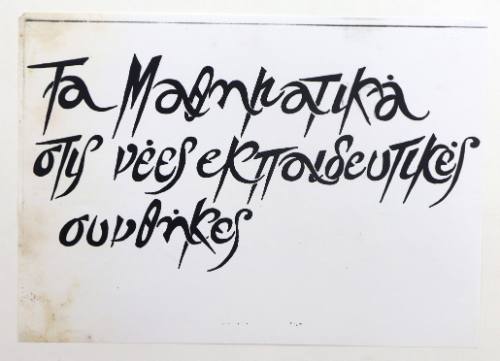 Τα Μαθηματικά
στις νέες εκπαιδευτικές
συνθήκες